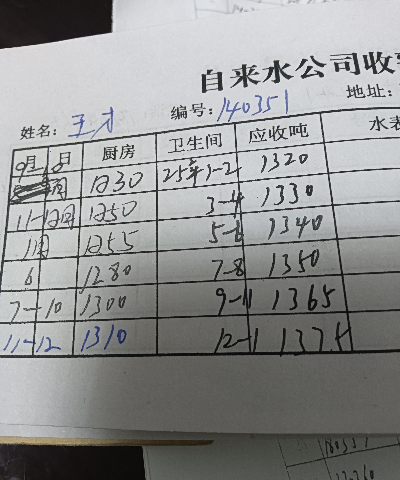 自来水公司收
姓名: 王才 编号: 140351 地址:
月 日 厨房 卫生间 应收吨 水表
1230 25年1-2 1320
11-12月 1250 3-4 1330
1月 1255 5-6 1340
6 1280 7-8 1350
7-10 1300 9-11 1365
11-12 1310 12-1 1375